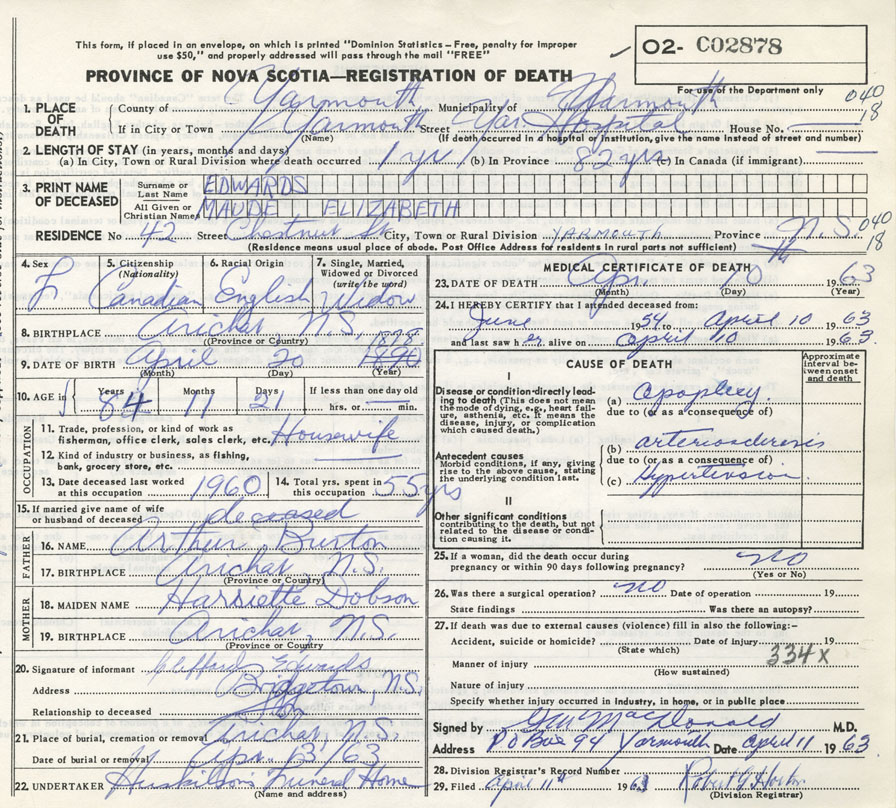 This form, if placed in an envelope, on which is printed "Dominion Statistics – Free, penalty for improper
use $50," and properly addressed will pass through the mail "FREE"
O2- C02878
PROVINCE OF NOVA SCOTIA—REGISTRATION OF DEATH
For use of the Department only
1. PLACE OF DEATH County of Yarmouth Municipality of Yarmouth 040
If in City or Town Yarmouth Street Yar Hospital House No. 18
(Name) (If death occurred in a hospital or institution, give the name instead of street and number)
2. LENGTH OF STAY (in years, months and days)
(a) In City, Town or Rural Division where death occurred 1 yr (b) In Province 82 yrs (c) In Canada (if immigrant)
3. PRINT NAME OF DECEASED Surname or Last Name EDWARDS
All Given or Christian Names MAUDE ELIZABETH
RESIDENCE No 42 Street Chestnut St City, Town or Rural Division YARMOUTH Province N.S. 040
18
(Residence means usual place of abode. Post Office Address for residents in rural parts not sufficient)
4. Sex F
5. Citizenship (Nationality) Canadian
6. Racial Origin English
7. Single, Married, Widowed or Divorced (write the word) Widow
8. BIRTHPLACE Arichat, N.S.
(Province or Country)
1878
9. DATE OF BIRTH April 20 1890
(Month) (Day) (Year)
10. AGE in Years 84 Months 11 Days 21 If less than one day old hrs. or min.
OCCUPATION
11. Trade, profession or kind of work as fisherman, office clerk, sales clerk, etc. Housewife
12. Kind of industry or business, as fishing, bank, grocery store, etc.
13. Date deceased last worked at this occupation 1960
14. Total yrs. spent in this occupation 55 yrs
15. If married give name of wife or husband of deceased deceased
FATHER
16. NAME Arthur Burton
17. BIRTHPLACE Arichat, N.S.
(Province or Country)
MOTHER
18. MAIDEN NAME Harriette Dobson
19. BIRTHPLACE Arichat, N.S.
(Province or Country)
20. Signature of informant Clifford Edwards
Address Bridgetown, N.S.
Relationship to deceased Son
21. Place of burial, cremation or removal Arichat N.S.
Date of burial or removal Apr. 13/63
22. UNDERTAKER Huskilson Funeral Home
(Name and address)
MEDICAL CERTIFICATE OF DEATH
23. DATE OF DEATH Apr. 10th 1963
(Month) (Day) (Year)
24. I HEREBY CERTIFY that I attended deceased from:
June 1954 to April 10 1963
and last saw her alive on April 10 1963.
CAUSE OF DEATH
Approximate interval between onset and death
I
Disease or condition directly leading to death (This does not mean the mode of dying, e.g., heart failure, asthenia, etc. It means the disease, injury, or complication which caused death.)
(a) apoplexy
due to (or as a consequence of)
Antecedent causes
Morbid conditions, if any, giving rise to the above cause, stating the underlying condition last.
(b) arteriosclerosis
due to (or as a consequence of)
(c) Hypertension
II
Other significant conditions contributing to the death, but not related to the disease or condition causing it.
25. If a woman, did the death occur during pregnancy or within 90 days following pregnancy? no
(Yes or No)
26. Was there a surgical operation? no Date of operation 19
State findings Was there an autopsy?
27. If death was due to external causes (violence) fill in also the following:–
Accident, suicide or homicide? Date of injury 19
(State which) 334X
Manner of injury
(How sustained)
Nature of injury
Specify whether injury occurred in industry, in home, or in public place
Signed by MacDonald M.D.
Address P O Box 94 Yarmouth Date April 11 1963
28. Division Registrar's Record Number
29. Filed April 11th 1963 Robert G Horton
(Division Registrar)